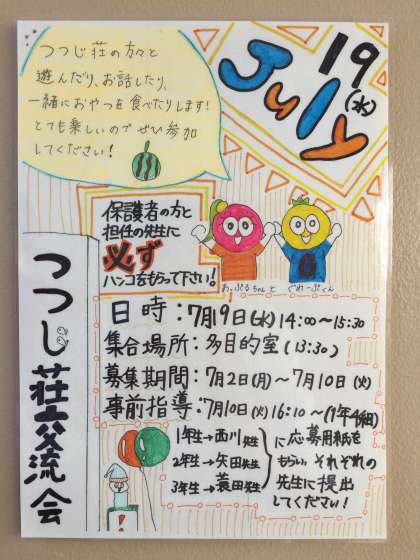 つつじ荘の方々と
遊んだり、お話したり、
一緒におやつを食べたりします!
とても楽しいのでぜひ参加
してください!
July
19
(水)
保護者の方と
担任の先生に
必ず
ハンコをもらって下さい!
あっぷるちゃんと
ぐれーぷくん
つつじ荘交流会
日時:7月19日(水)14:00~15:30
集合場所:多目的室(13:30)
募集期間:7月2日(月)~7月10日(火)
事前指導:7月10日(火)16:10~(1年4組)
1年生→西川先生
2年生→矢田先生
3年生→蓑田先生
に応募用紙を
もらい、それぞれの
先生に提出
してください!